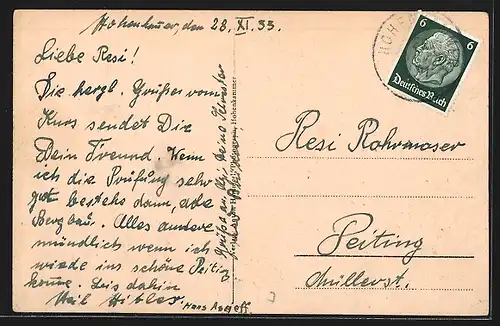 Hohenkamer, den 28. XI. 33.
Liebe Resi!
Die herzl. Grüße vom
Kurs sendet Dir
Dein Freund. Wenn
ich die Prüfung sehr
gut bestehe dann, ade
Bergbau. Alles andere
mündlich wenn ich
wieder ins schöne Peiting
komme. Bis dahin
Heil Hitler
Hans
Hohenkammer
6 6
Deutsches Reich
HOHE
Resi Rohrmoser
Peiting
Müllerst.